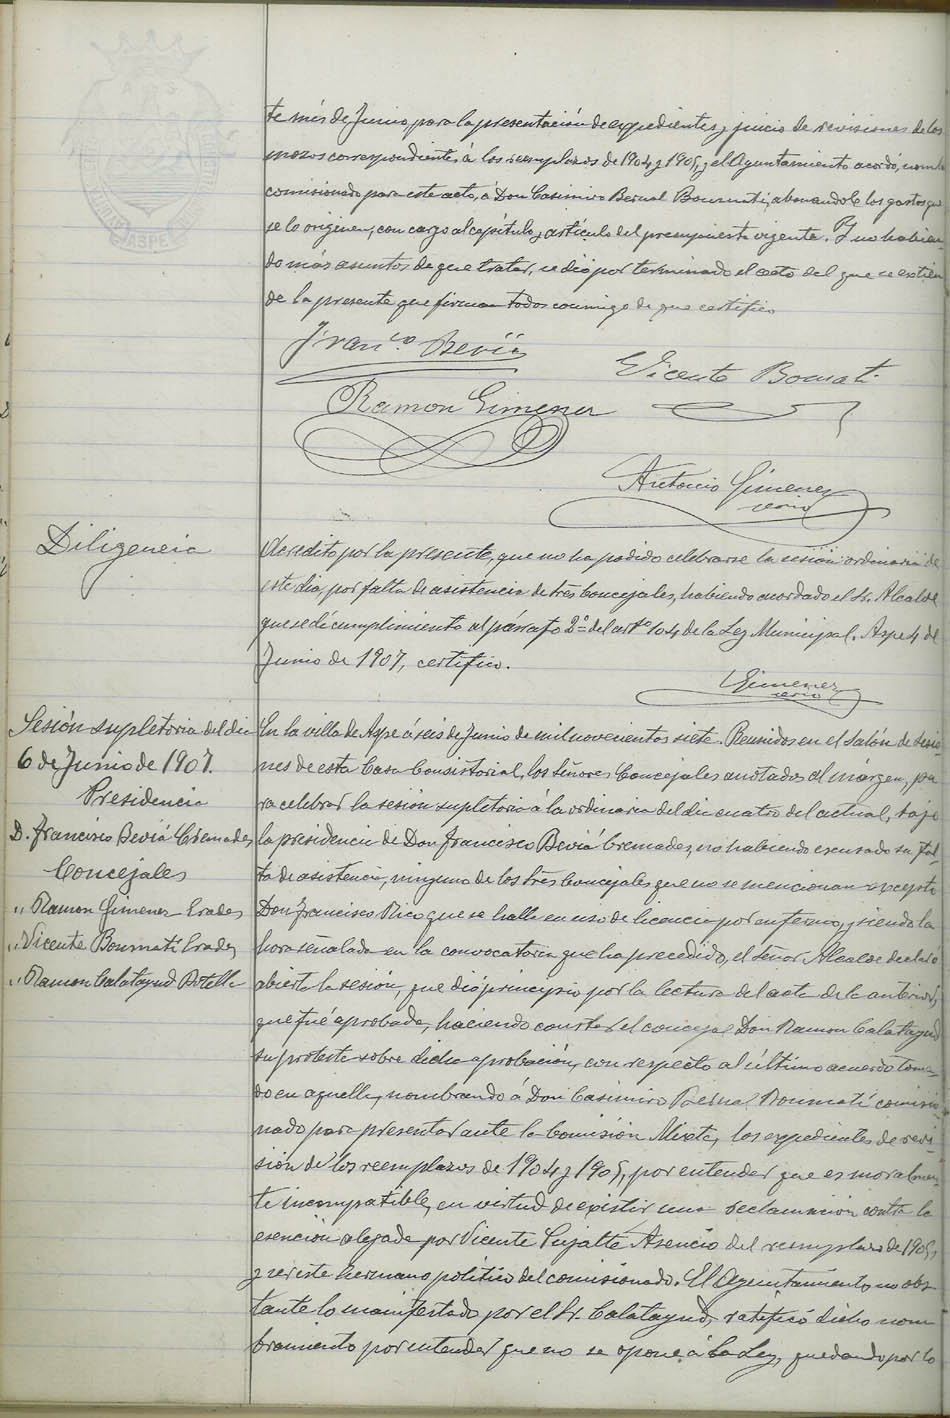 te més de Junio, para la presentación de expedientes y juicio de revisiones de los
mozos correspondientes á los reemplazos de 1904 y 1905, y el Ayuntamiento acordó, nombrar
comisionado para este acto, á Don Casimiro Bernal Boumatí, abonandole los gastos que
se le originen, con cargo al capítulo y artículo del presupuesto vigente. Y no habien-
do más asuntos de que tratar, se dió por terminado el acto del que se extien
de la presente que firman todos conmigo de que certifico
Franco. Beviá
Vicente Boumatí
Ramon Gimenez
Antonio Gimenez
srio
Diligencia
Acredito por la presente, que no ha podido celebrarse la sesión ordinaria de
este dia, por falta de asistencia de tres Concejales, habiendo acordado el Sr. Alcalde
que se dé cumplimiento al párrafo 2º del artº 104 de la Ley Municipal. Aspe 4 de
Junio de 1907, certifico.
Gimenez
srio
Sesión supletoria del dia
6 de Junio de 1907.
Presidencia
D. Francisco Beviá Cremades
Concejales
" Ramon Gimenez Erades
" Vicente Boumatí Erades
" Ramon Calatayud Botella
En la villa de Aspe á seis de Junio de mil novecientos siete. Reunidos en el Salón de sesio-
nes de esta Casa Consistorial, los Señores Concejales anotados al márgen, pa
ra celebrar la sesión supletoria á la ordinaria del dia cuatro del actual, bajo
la presidencia de Don Francisco Beviá Cremades, no habiendo escusado su fal-
ta de asistencia, ninguno de los tres Concejales que no se mencionan excepto
Don Francisco Rico que se halla en uso de licencia por enfermo, y siendo la
hora señalada en la convocatoria que ha precedido, el señor Alcalde declaró
abierta la sesión, que dió principio por la lectura del acta de la anterior,
que fué aprobada, haciendo constar el concejal Don Ramon Calatayud
su protesta sobre dicha aprobación, con respecto al último acuerdo toma-
do en aquella, nombrando á Don Casimiro Bernal Boumatí comisio-
nado para presentar ante la Comisión Mixta, los expedientes de revi-
sión de los reemplazos de 1904 y 1905, por entender que es moralmen-
te incompatible, en virtud de existir una reclamación contra la
esención alegada por Vicente Pujalte Asencio del reemplazo de 1905,
y ser este hermano político del comisionado. El Ayuntamiento no obs
tante lo manifestado por el Sr. Calatayud, ratificó dicho nom
bramiento por entender que no se opone á la Ley, quedando por lo